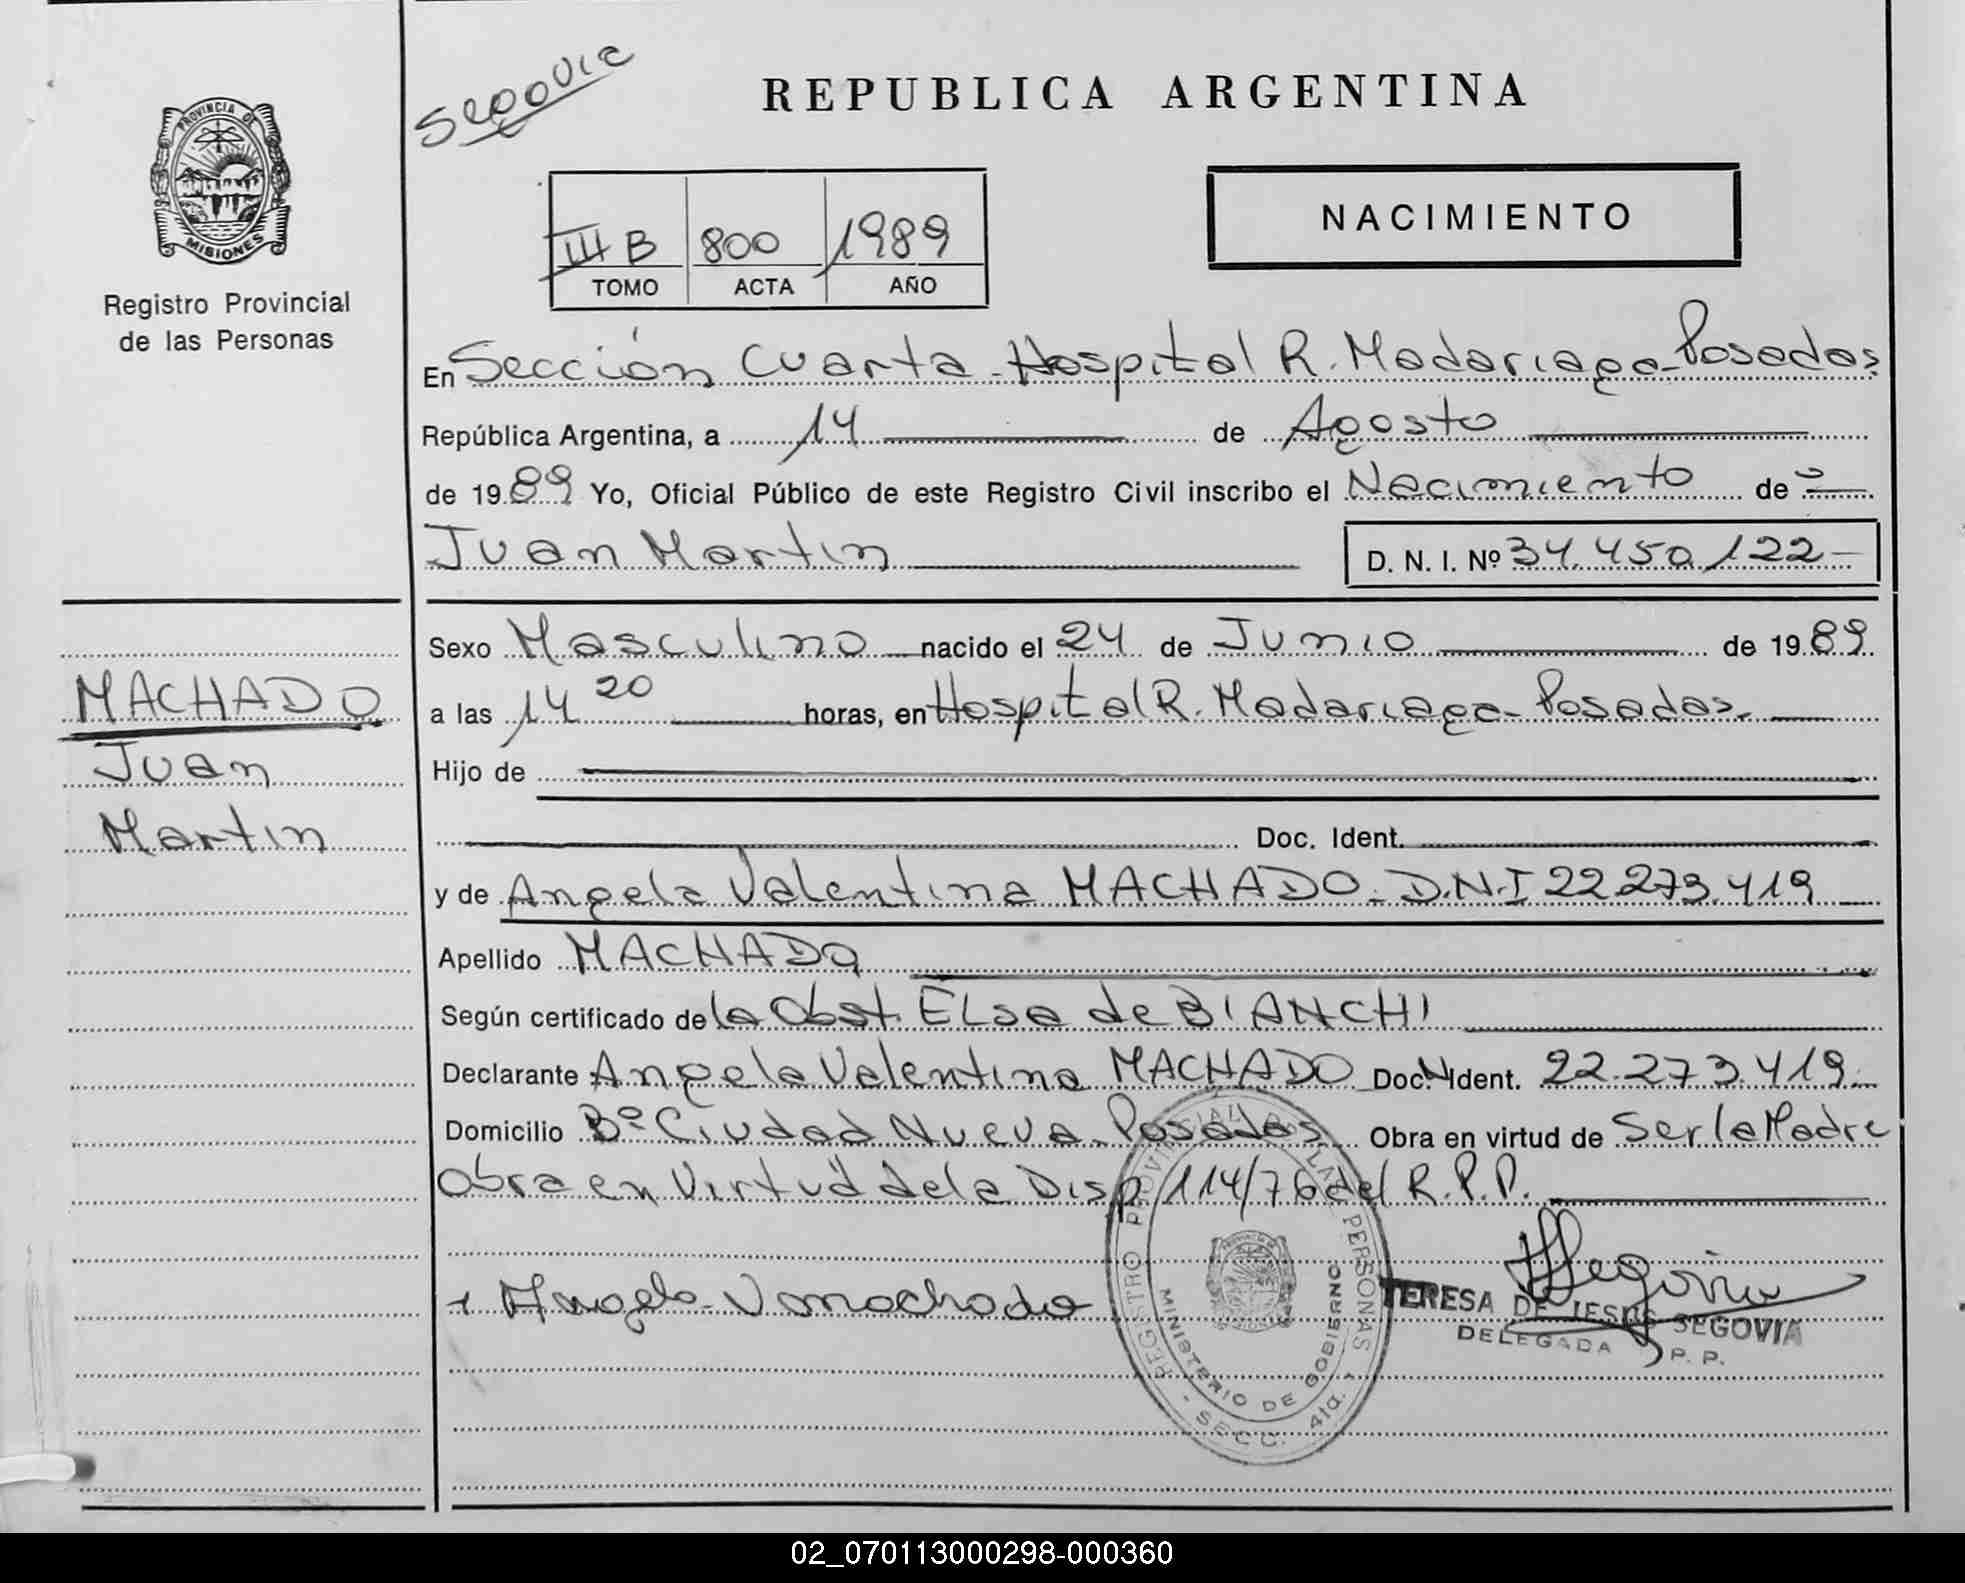 Segovia
REPUBLICA ARGENTINA
PROVINCIA DE
MISIONES
Registro Provincial
de las Personas
III B 800 1989
TOMO ACTA AÑO
NACIMIENTO
En Sección Cuarta - Hospital R. Madariaga - Posadas
República Argentina, a 14 de Agosto
de 1989 Yo, Oficial Público de este Registro Civil inscribo el Nacimiento de
Juan Martin
D. N. I. Nº 34.450.122
MACHADO
Juan
Martin
Sexo Masculino nacido el 24 de Junio de 1989
a las 14 20 horas, en Hospital R. Madariaga - Posadas.
Hijo de
Doc. Ident.
y de Angela Valentina MACHADO - D.N.I 22.273.419
Apellido MACHADO
Según certificado de la Obst. ELsa de BIANCHI
Declarante Angela Valentina MACHADO Doc. Ident. 22.273.419
Domicilio Bº Ciudad Nueva - Posadas Obra en virtud de Ser la Madre
Obra en Virtud de la Disp 114/76 del R.P.P.
Angela V machado
REGISTRO PROVINCIAL DE LAS PERSONAS
MINISTERIO DE GOBIERNO
- SECC. 4ta. -
TERESA DE JESUS SEGOVIA
DELEGADA P. P.
02_070113000298-000360